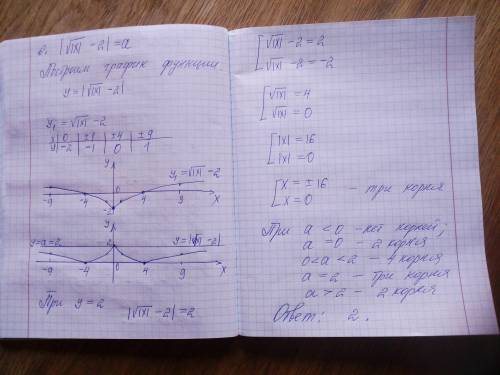 6. |√|x| - 2| = a
Построим график функции
y = |√|x| - 2|
y₁ = √|x| - 2
x | 0 | ±1 | ±4 | ±9
y | -2 | -1 | 0 | 1
y
y₁ = √|x| - 2
-9 -4 0 4 9 x
-2
y
y = a = 2 2 y = |√|x| - 2|
-9 -4 0 4 9 x
При y = 2 |√|x| - 2| = 2
[ √|x| - 2 = 2
√|x| - 2 = -2
[ √|x| = 4
√|x| = 0
[ |x| = 16
|x| = 0
[ x = ±16
x = 0 - три корня
При a < 0 - нет корней;
a = 0 - 2 корня
0 < a < 2 - 4 корня
a = 2 - три корня
a > 2 - 2 корня
Ответ: 2.